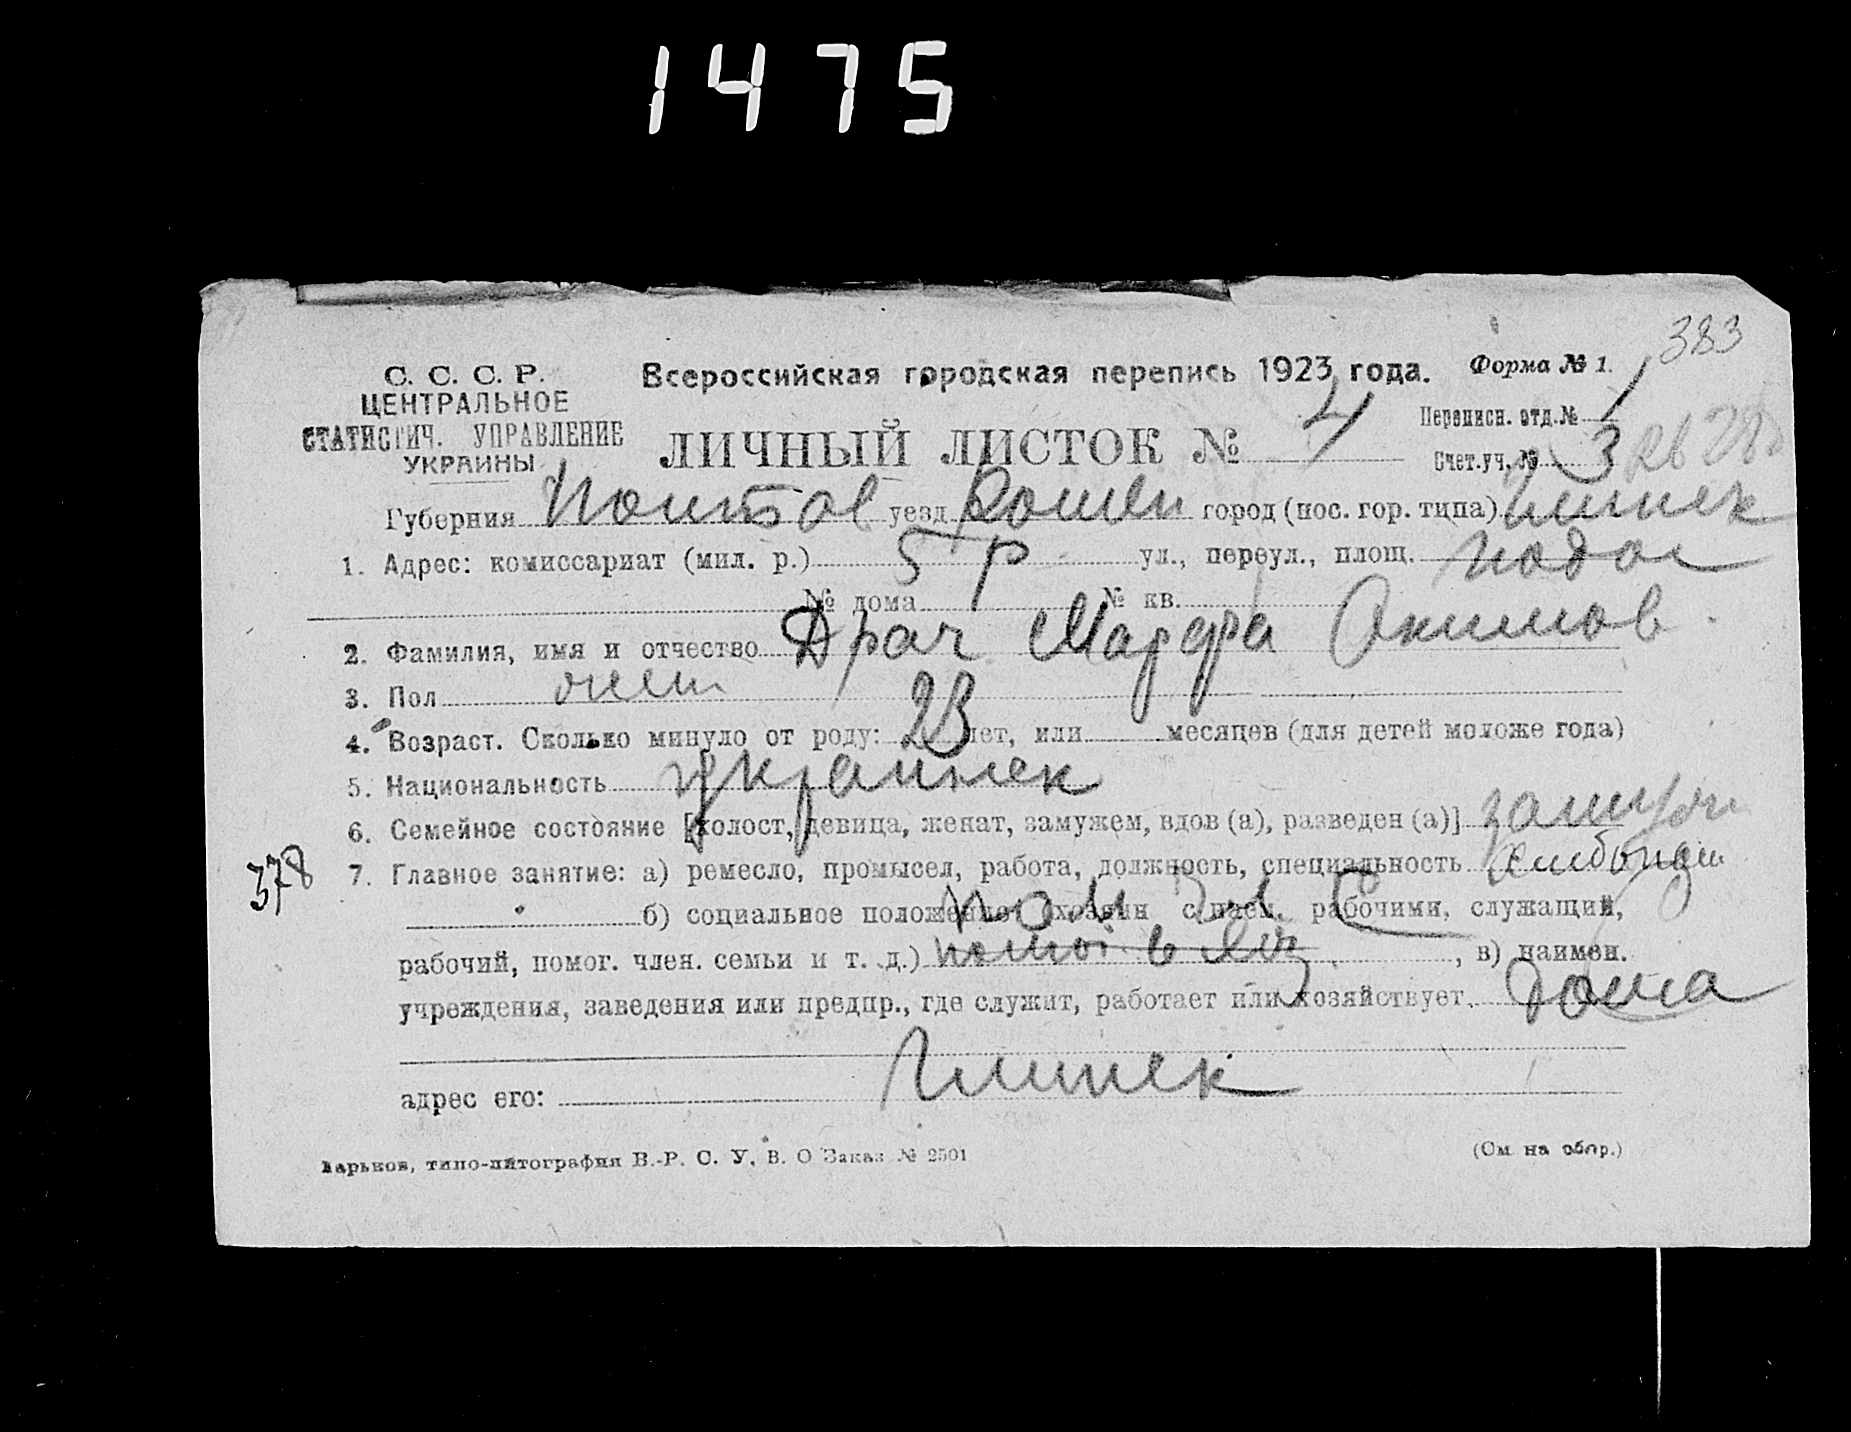 1475
383
С. С. С. Р.
ЦЕНТРАЛЬНОЕ
СТАТИСТИЧ. УПРАВЛЕНИЕ
УКРАИНЫ
Всероссийская городская перепись 1923 года. Форма № 1.
ЛИЧНЫЙ ЛИСТОК № 4
Переписн. отд. № 1
Счет.уч. № 3
Губерния Полтов уезд Ромен город (пос. гор. типа) Глинск
1. Адрес: комиссариат (мил. р.) 5 р ул., переул., площ. Подол
№ дома № кв.
2. Фамилия, имя и отчество Драч Марфа Акимов
3. Пол жен
4. Возраст. Сколько минуло от роду: 23 лет, или месяцев (для детей моложе года)
5. Национальность
6. Семейное состояние [холост, девица, женат, замужем, вдов (а), разведен (а)] замуж
378
7. Главное занятие: а) ремесло, промысел, работа, должность, специальность
б) социальное положение (хозяин с наем. рабочими, служащий,
рабочий, помог. член. семьи и т. д.) , в) наимен.
учреждения, заведения или предпр., где служит, работает или хозяйствует. дома
адрес его: Глинск
Харьков, типо-литография В.-Р. С. У. В. О Заказ № 2501
(См на обор.)